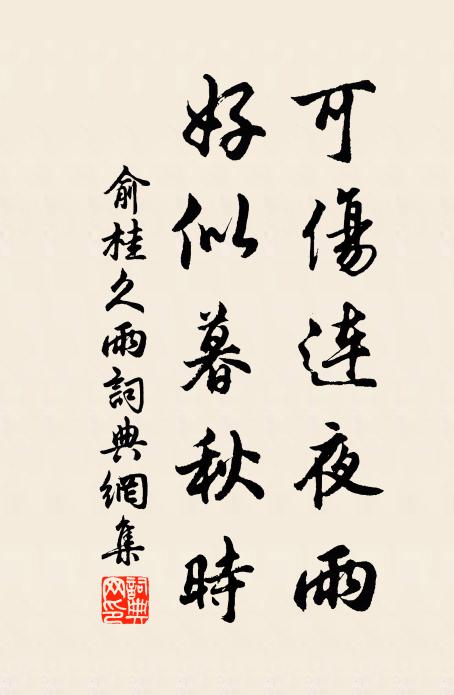 可傷連夜雨
好似暮秋時
俞桂久雨詞典網集
詞典網印